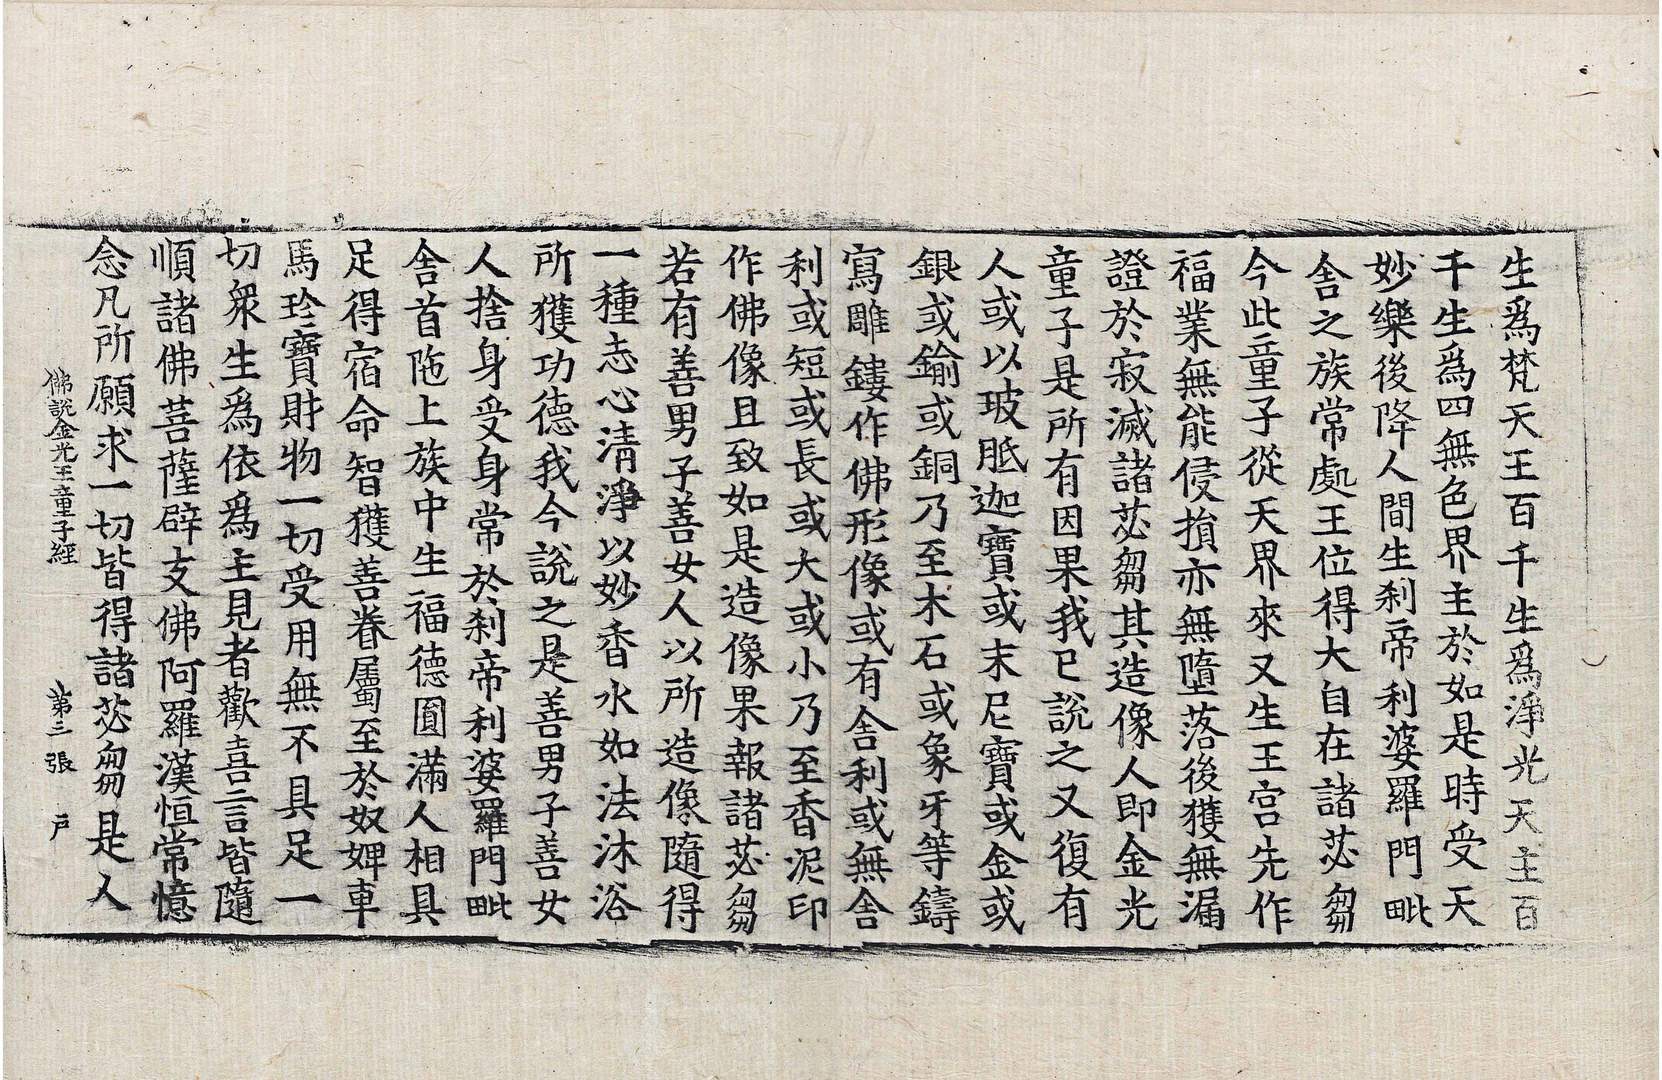 生爲梵天王百千生爲淨光天主百
千生爲四無色界主於如是時受天
妙樂後降人間生刹帝利婆羅門毗
舍之族常處王位得大自在諸苾芻
今此童子從天界來又生王宮先作
福業無能侵損亦無墮落後獲無漏
證於寂滅諸苾芻其造像人即金光
童子是所有因果我已說之又復有
人或以玻胝迦寶或末尼寶或金或
銀或鍮或銅乃至木石或象牙等鑄
寫雕鏤作佛形像或有舍利或無舍
利或短或長或大或小乃至香泥印
作佛像且致如是造像果報諸苾芻
若有善男子善女人以所造像隨得
一種志心清淨以妙香水如法沐浴
所獲功德我今說之是善男子善女
人捨身受身常於刹帝利婆羅門毗
舍首陁上族中生福德圓滿人相具
足得宿命智獲善眷屬至於奴婢車
馬珍寶財物一切受用無不具足一
切衆生爲依爲主見者歡喜言皆隨
順諸佛菩薩辟支佛阿羅漢恒常憶
念凡所願求一切皆得諸苾芻是人
佛說金光王童子經 第三張 戶